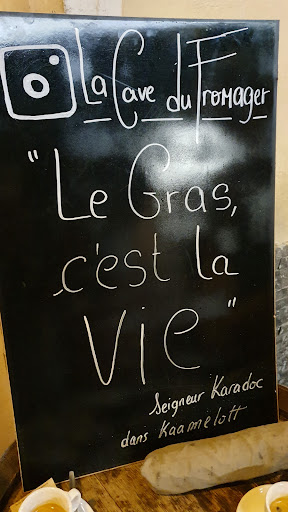 La Cave du Fromager
"Le Gras,
c'est la
Vie"
Seigneur Karadoc
dans Kaamelott